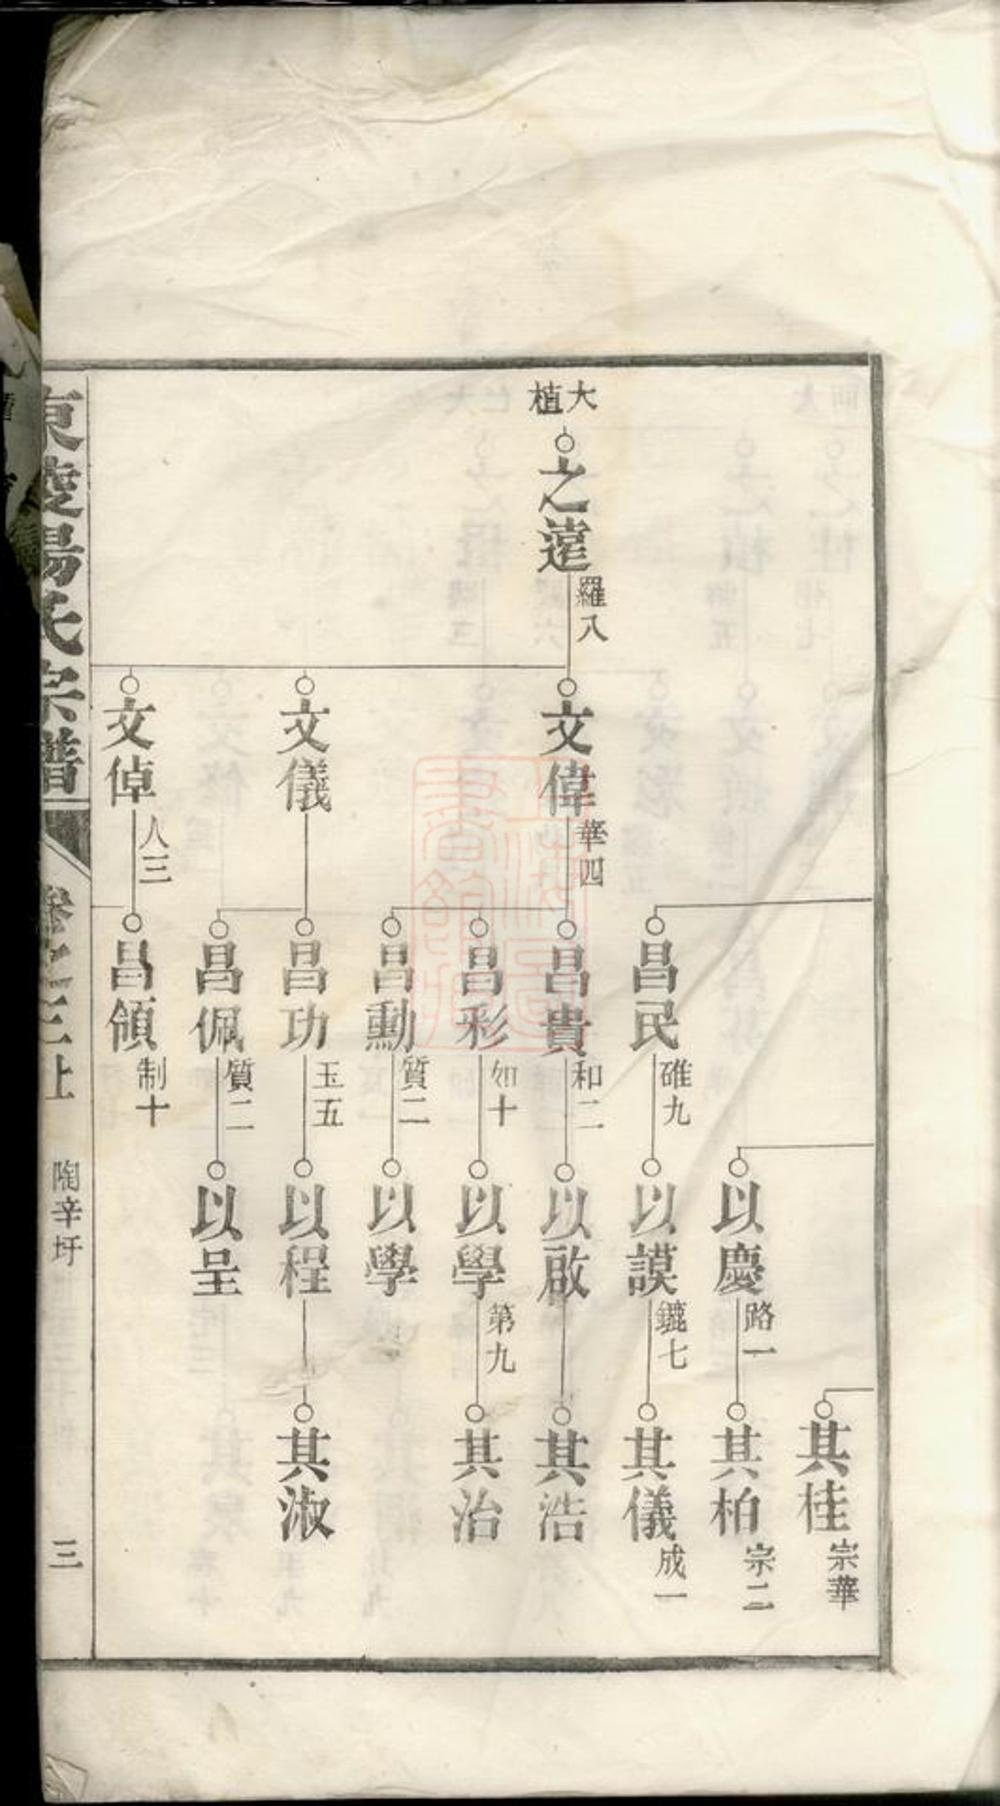 大植
之遠
羅八
文偉
華四
文儀
文倬
八三
昌民
碓九
昌貴
和二
昌彩
如十
昌勳
質二
昌功
玉五
昌佩
質二
昌領
制十
以慶
路一
以謨
鑣七
以啟
以學
第九
以學
以程
以呈
其桂
宗華
其柏
宗二
其儀
成一
其浩
其治
其淑
東陵楊氏宗譜
卷之三上
陶辛圩
三